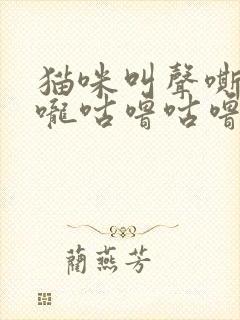 猫咪叫聲嘶
嚨咕嚕咕嚕
藺燕芳